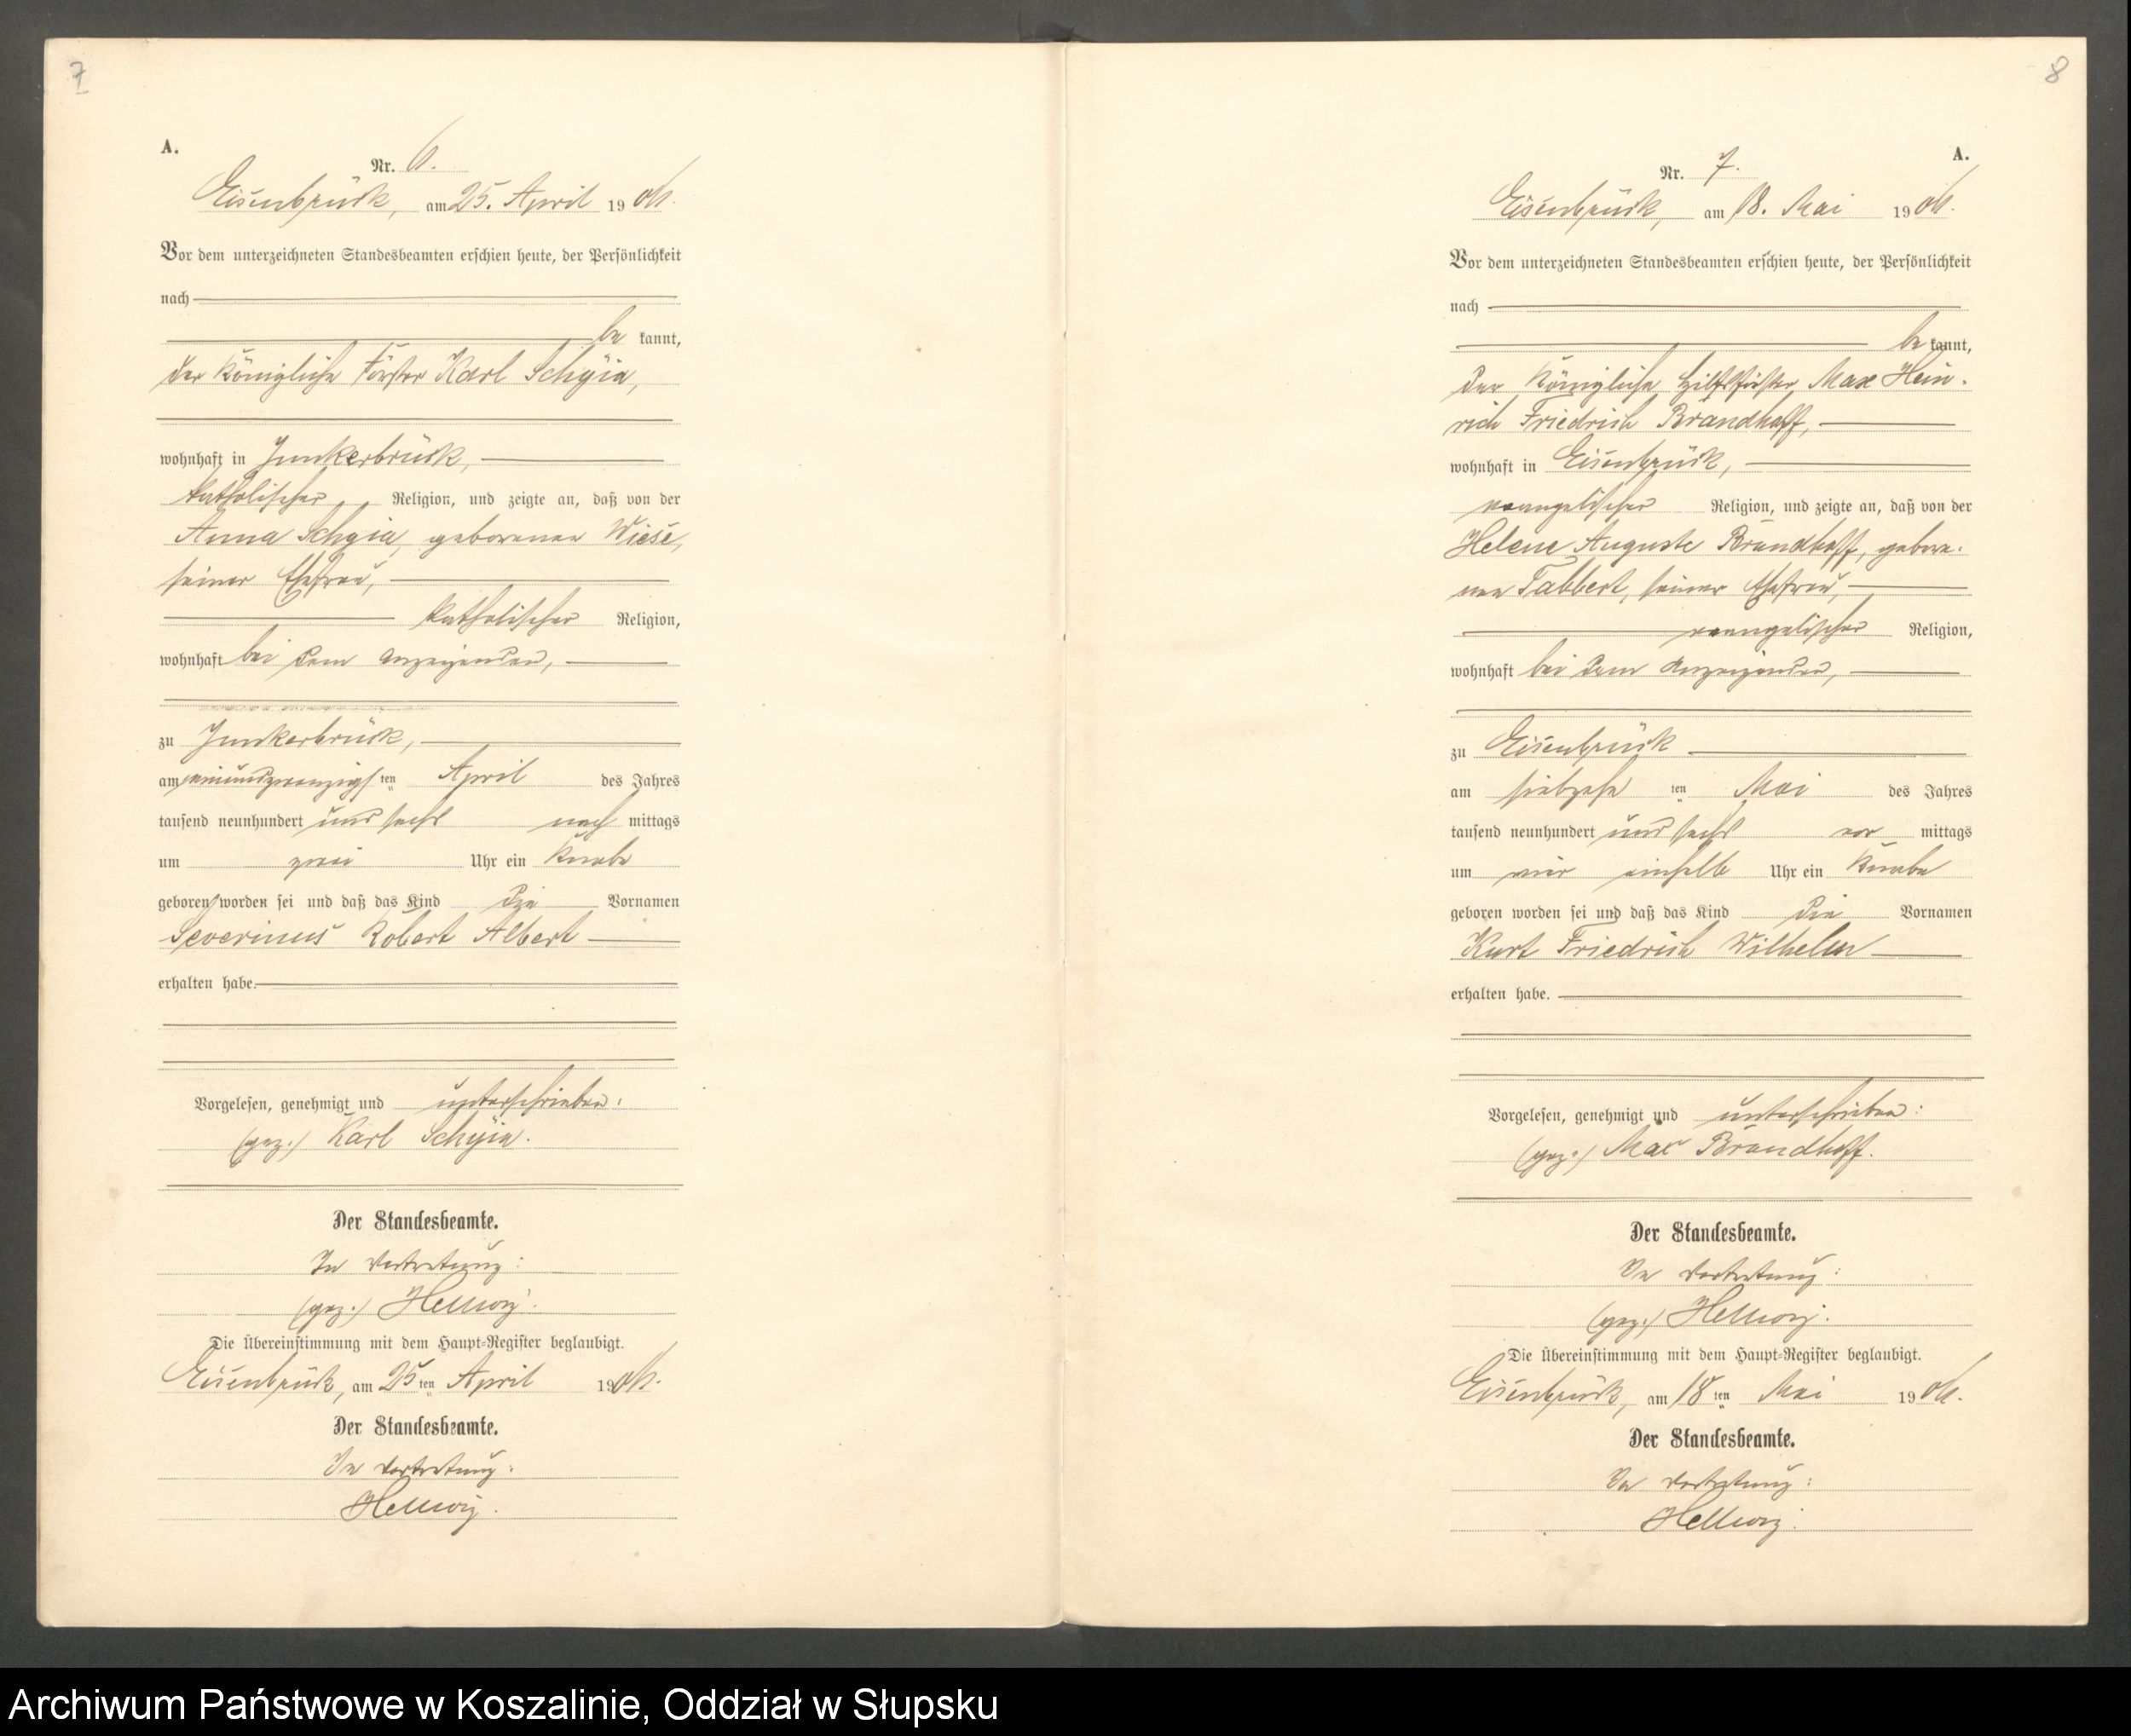 7
A.
Nr. 6.
Eisenbrück, am 25. April 1906.
Vor dem unterzeichneten Standesbeamten erschien heute, der Persönlichkeit
nach
be kannt,
der Königliche Förster Karl Schyia,
wohnhaft in Junkerbrück,
katholischer Religion, und zeigte an, daß von der
Anna Schyia, geborenen Wiese,
seiner Ehefrau,
katholischer Religion,
wohnhaft bei dem Anzeigenden,
zu Junkerbrück,
am einundzwanzigsten April des Jahres
tausend neunhundert und sechs nach mittags
um zwei Uhr ein Knabe
geboren worden sei und daß das Kind die Vornamen
Severinus Robert Albert
erhalten habe.
Vorgelesen, genehmigt und unterschrieben:
(gez.) Karl Schyia.
Der Standesbeamte.
In Vertretung:
(gez.) Hellwig.
Die Übereinstimmung mit dem Haupt-Register beglaubigt.
Eisenbrück, am 25ten April 1906.
Der Standesbeamte.
In Vertretung:
Hellwig.
8
A.
Nr. 7.
Eisenbrück, am 18. Mai 1906.
Vor dem unterzeichneten Standesbeamten erschien heute, der Persönlichkeit
nach
be kannt,
der Königliche Hilfsförster Max Hein-
rich Friedrich Brandhoff,
wohnhaft in Eisenbrück,
evangelischer Religion, und zeigte an, daß von der
Helene Auguste Brandhoff, gebore-
nen Tabbert, seiner Ehefrau,
evangelischer Religion,
wohnhaft bei dem Anzeigenden,
zu Eisenbrück
am siebzehnten Mai des Jahres
tausend neunhundert und sechs vor mittags
um vier einhalb Uhr ein Knabe
geboren worden sei und daß das Kind die Vornamen
Kurt Friedrich Wilhelm
erhalten habe.
Vorgelesen, genehmigt und unterschrieben:
(gez.) Max Brandhoff.
Der Standesbeamte.
In Vertretung:
(gez.) Hellwig.
Die Übereinstimmung mit dem Haupt-Register beglaubigt.
Eisenbrück, am 18ten Mai 1906.
Der Standesbeamte.
In Vertretung:
Hellwig.
Archiwum Państwowe w Koszalinie, Oddział w Słupsku